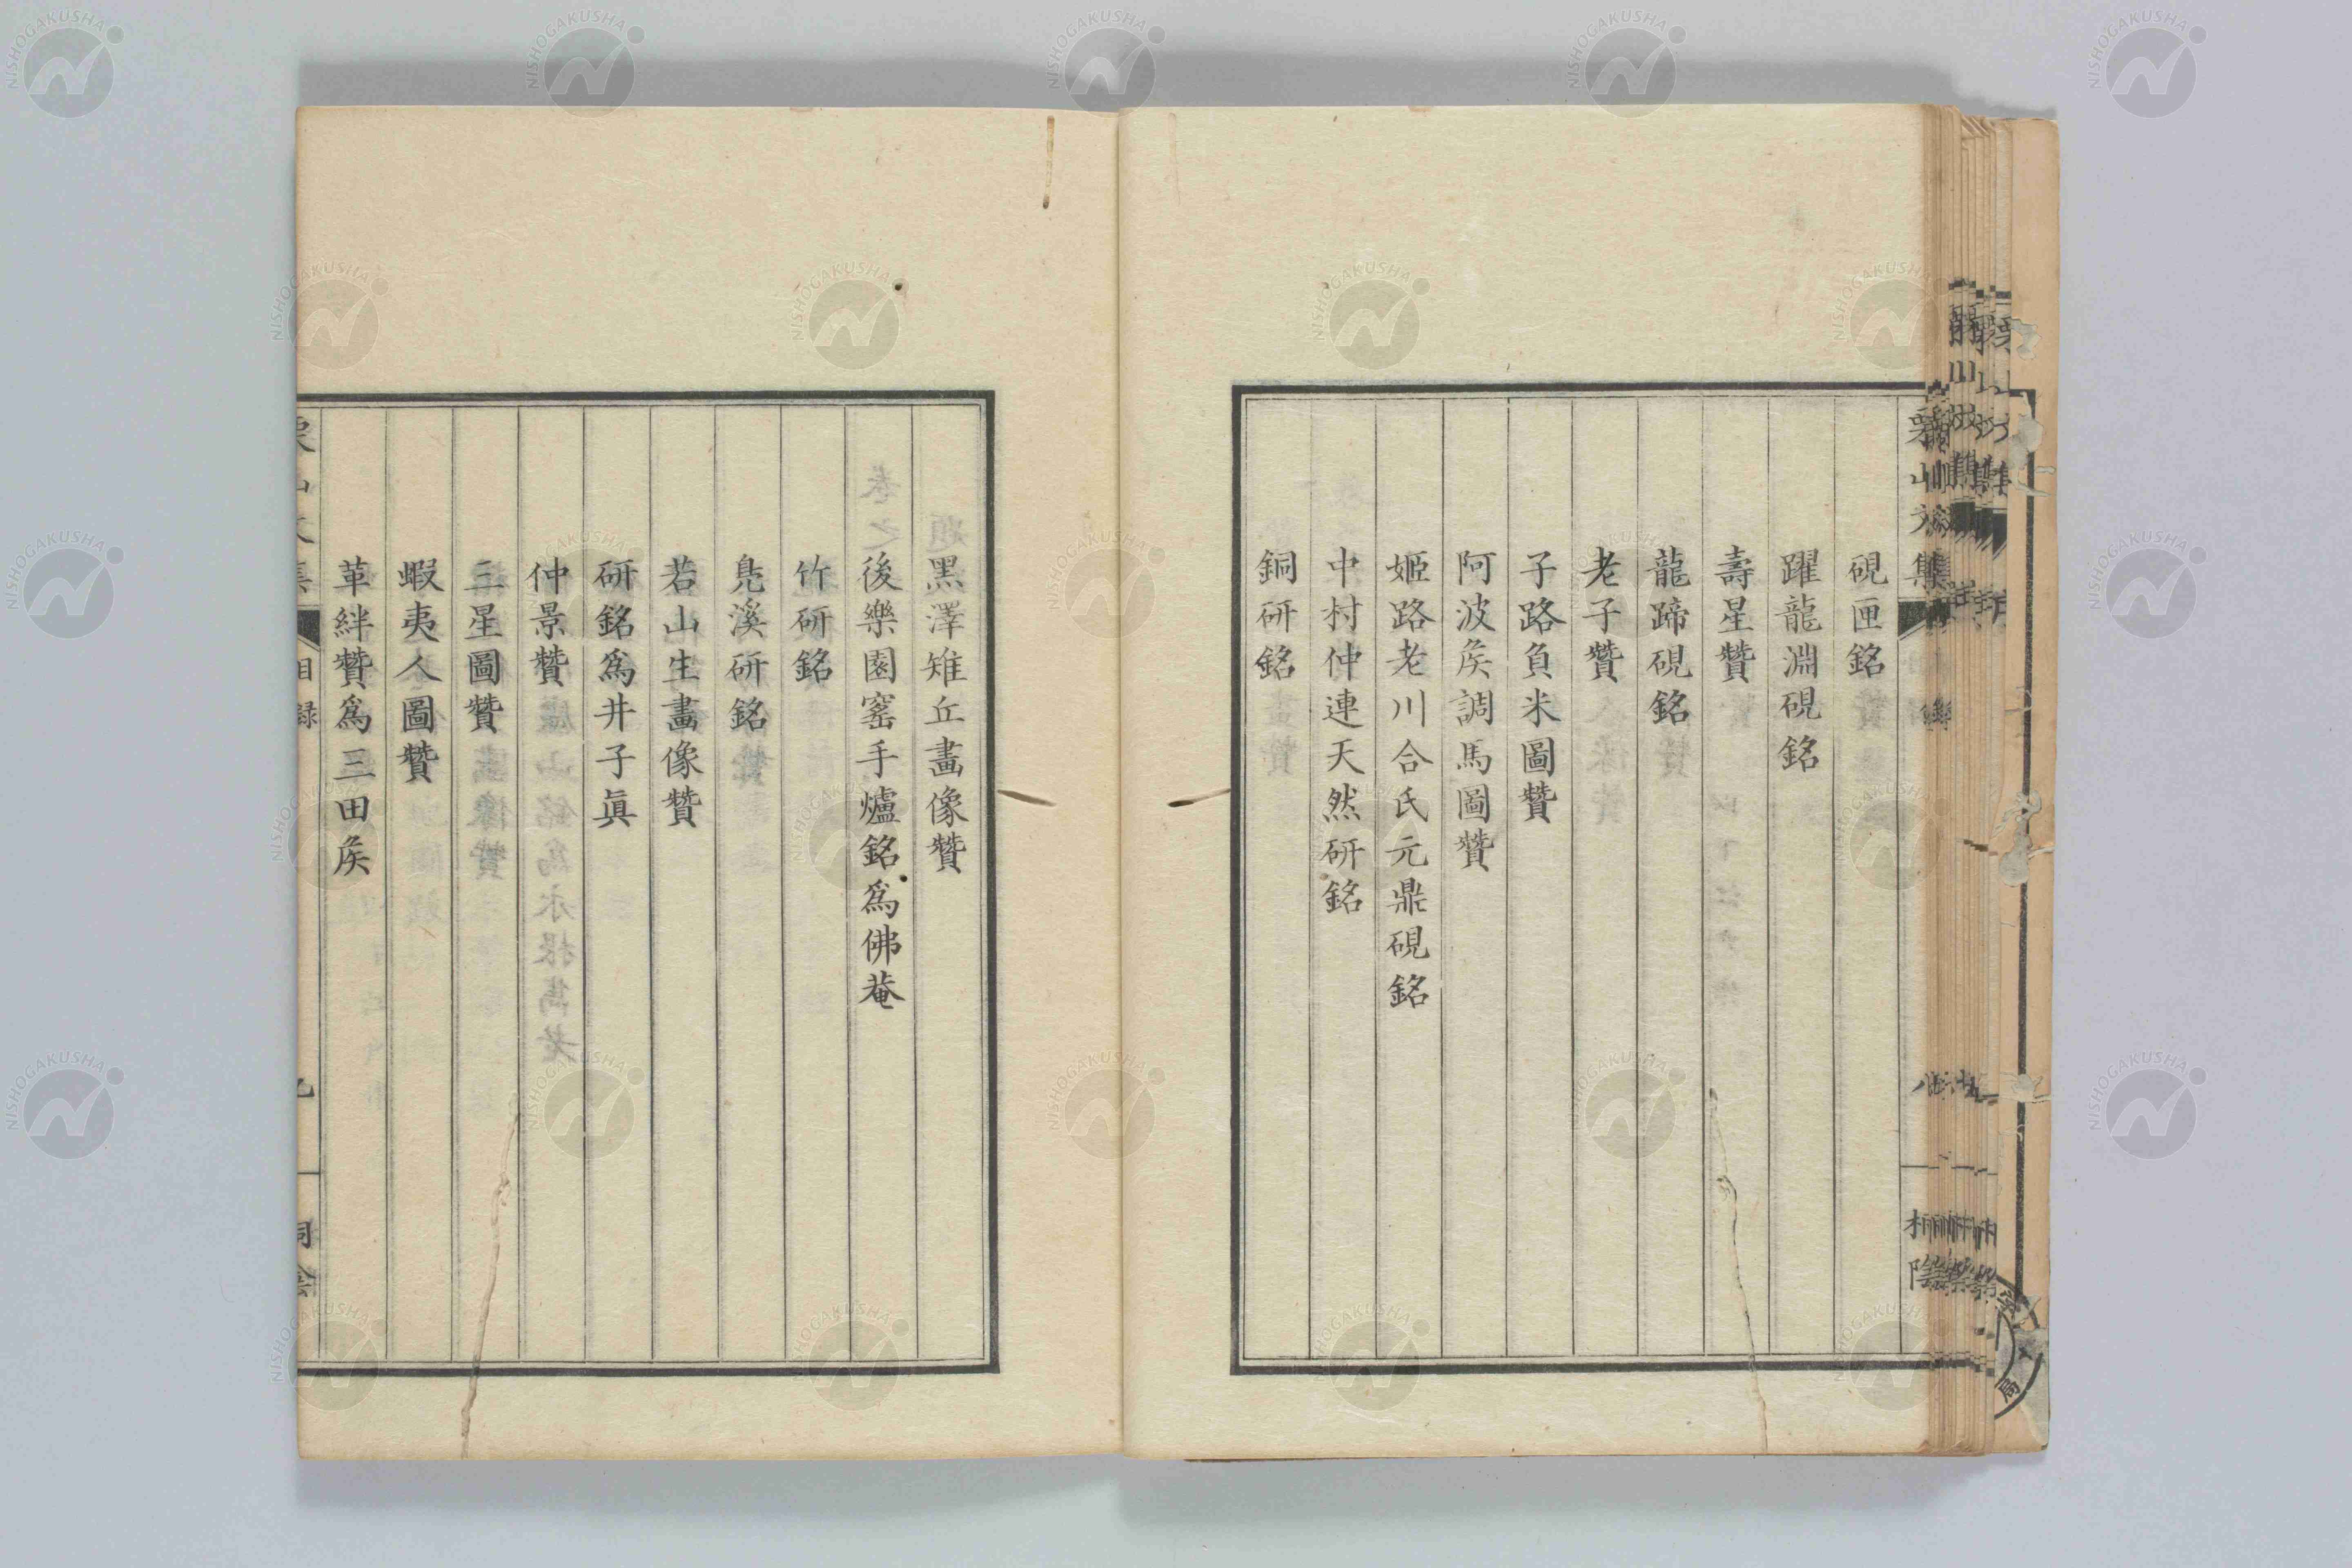 硯匣銘
躍龍淵硯銘
壽星贊
龍蹄硯銘
老子贊
子路負米圖贊
阿波矦調馬圖贊
姬路老川合氏元鼎硯銘
中村仲連天然研銘
銅研銘
黑澤雉丘畫像贊
後樂園窰手爐銘爲佛菴
竹研銘
鳧溪研銘
若山生畫像贊
研銘爲井子眞
仲景贊
三星圖贊
蝦夷人圖贊
革絆贊爲三田矦
目録
NISHOGAKUSHA